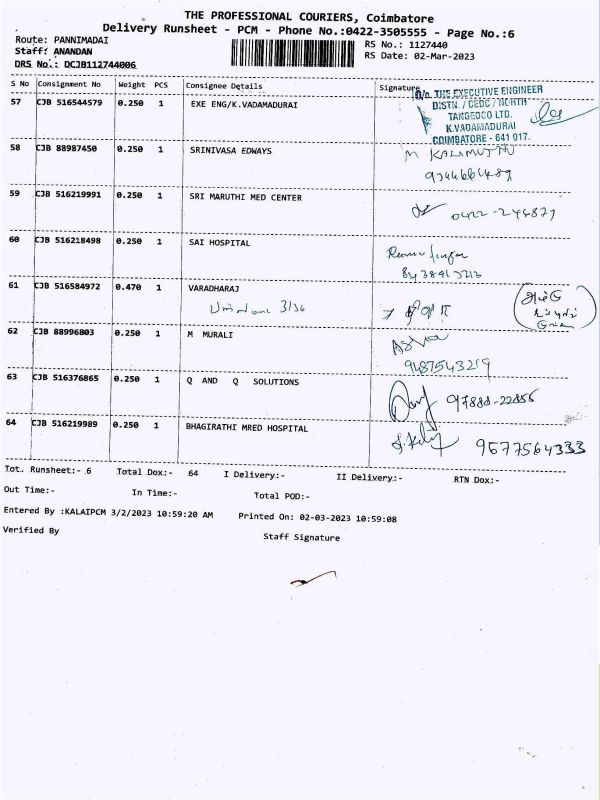 THE PROFESSIONAL COURIERS, Coimbatore
Delivery Runsheet - PCM - Phone No.:0422-3505555 - Page No.:6
Route: PANNIMADAI
RS No.: 1127440
Staff: ANANDAN
RS Date: 02-Mar-2023
DRS No.: DCJB112744006
S No Consignment No Weight PCS Consignee Details Signature
57 CJB 516544579 0.250 1 EXE ENG/K.VADAMADURAI
O/o. THE EXECUTIVE ENGINEER
DISTN. / CEDC / NORTH
TANGEDCO LTD.
K.VADAMADURAI
COIMBATORE - 641 017.
58 CJB 88987450 0.250 1 SRINIVASA EDWAYS
M KALIMUTHU
59 CJB 516219991 0.250 1 SRI MARUTHI MED CENTER
60 CJB 516218498 0.250 1 SAI HOSPITAL
61 CJB 516584972 0.470 1 VARADHARAJ
3/36
62 CJB 88996803 0.250 1 M MURALI
9487543219
63 CJB 516376865 0.250 1 Q AND Q SOLUTIONS
97888-22856
64 CJB 516219989 0.250 1 BHAGIRATHI MRED HOSPITAL
9677564333
Tot. Runsheet:- 6 Total Dox:- 64 I Delivery:- II Delivery:- RTN Dox:-
Out Time:- In Time:- Total POD:-
Entered By :KALAIPCM 3/2/2023 10:59:20 AM Printed On: 02-03-2023 10:59:08
Verified By Staff Signature